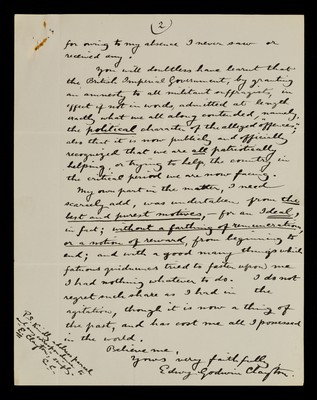 (2)
for owing to my absence I never saw or
received any.
You will doubtless have learnt that
the British Imperial Government, by granting
an amnesty to all militant suffragists, in
effect if not in words, admitted at length
exactly what we all along contended, namely,
the political character of the alleged offences;
also that it is now publicly and officially
recognized that we are all patriotically
helping or trying to help the country in
the critical period we are now facing.
My own part in the matter, I need
scarcely add, was undertaken from the
best and purest motives, – for an Ideal,
in fact; without a farthing of remuneration
or a notion of reward, from beginning to
end; and with a good many things which
fatuous quidnuncs tried to fasten upon me
I had nothing whatever to do. I do not
regret such share as I had in the
agitation, though it is now a thing of
the past, and has cost me all I possessed
in the world.
Believe me,
Yours very faithfully
Edwy Godwin Clayton.
P.S. Kindly